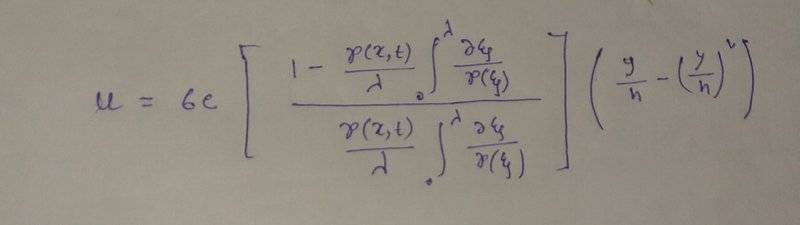 u = 6c [ (1 - (a(x,t)/λ) ∫₀^λ ∂ξ/a(ξ)) / ((a(x,t)/λ) ∫₀^λ ∂ξ/a(ξ)) ] ( y/h - (y/h)² )